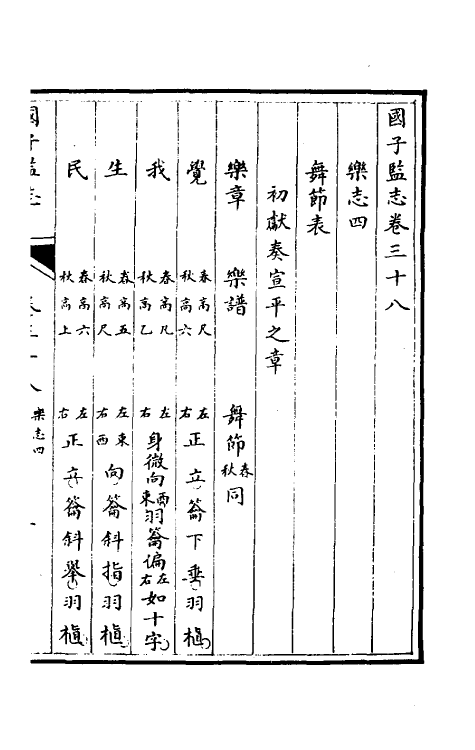 國子監志卷三十八
樂志四
舞節表
初獻奏宣平之章
樂章 樂譜 舞節春秋同
覺 春高尺秋高六 左右正立籥下垂羽植
我 春高凡秋高乙 左右身微向西東羽籥偏左右如十字
生 春高五秋高尺 左東右西向籥斜指羽植
民 春高六秋高上 左右正立籥斜舉羽植
國子監志 卷三十八 樂志四 一